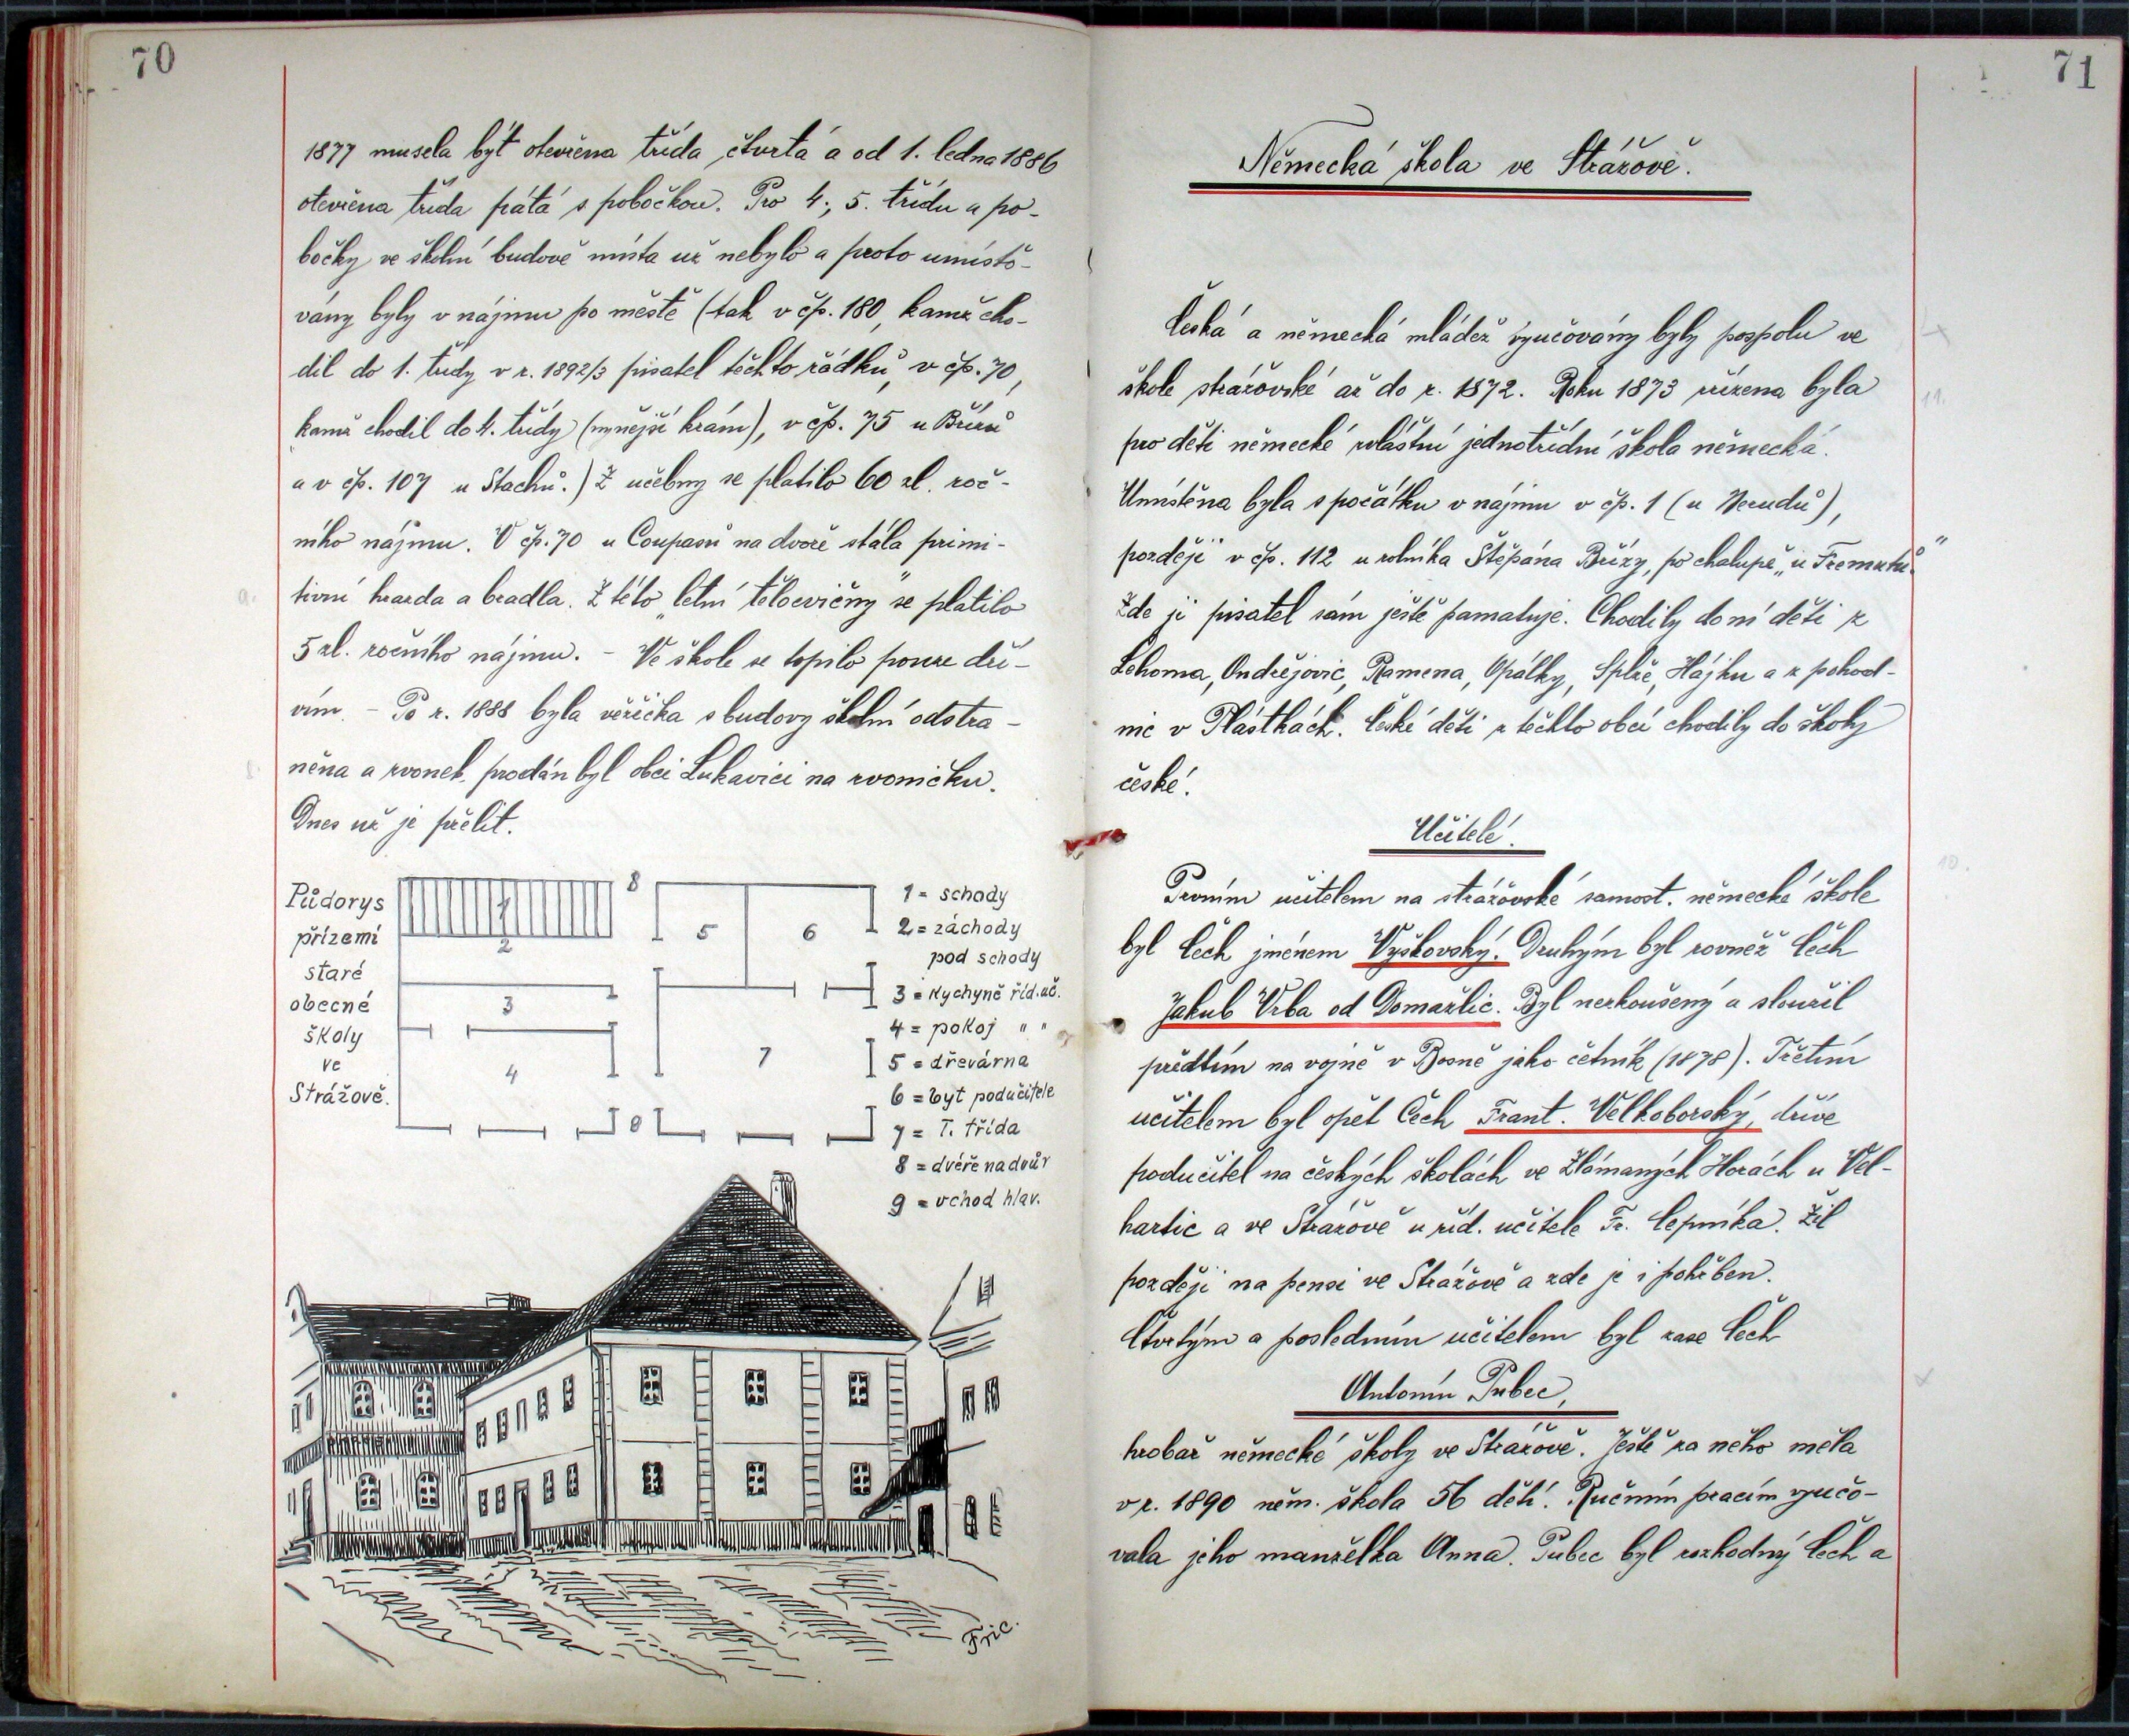 70
1877 musela být otevřena třída čtvrtá a od 1. ledna 1886
otevřena třída pátá s pobočkou. Pro 4., 5. třídu a po-
bočky ve školní budově místa už nebylo a proto umístě-
vány byly v nájmu po městě (tak v čp. 180, kamž cho-
dil do 1. třídy v r. 1892/3 pisatel těchto řádků, v čp. 70,
kamž chodil do 4. třídy (nynější krám), v čp. 75 u Břízů
a v čp. 107 u Stachů.) Z učebny se platilo 60 zl. roč-
ního nájmu. V čp. 70 u Coupasů na dvoře stála primi-
tivní hrazda a bradla. Z této „letní tělocvičny" se platilo
5 zl. ročního nájmu. - Ve škole se topilo pouze dří-
vím. - Po r. 1888 byla věžička s budovy školní odstra-
něna a zvonek prodán byl obci Lukavici na zvoničku.
Dnes už je přelit.
Půdorys
přízemí
staré
obecné
školy
ve
Strážově.
1
2
3
4
5
6
7
8
9
1 = schody
2 = záchody
pod schody
3 = kychyně říd. uč.
4 = pokoj " "
5 = dřevárna
6 = byt podučitele
7 = I. třída
8 = dveře na dvůr
9 = vchod hlav.
Fric.
71
Německá škola ve Strážově.
Česká a německá mládež vyučovány byly pospolu ve
škole strážovské až do r. 1872. Roku 1873 zřízena byla
pro děti německé zvláštní jednotřídní škola německá.
Umístěna byla s počátku v nájmu v čp. 1 (u Nerudů),
později v čp. 112 u rolníka Štěpána Břízy, po chalupě „u Tremutů."
Zde ji pisatel sám ještě pamatuje. Chodily do ní děti z
Lehoma, Ondřejovic, Kamena, Opálky, Splže, Hájku a z pohod-
nic v Plástkách. České děti z těchto obcí chodily do školy
české.
Učitelé.
Prvním učitelem na strážovské samost. německé škole
byl Čech jménem Vyškovský. Druhým byl rovněž Čech
Jakub Vrba od Domažlic. Byl nezkoušený a sloužil
předtím na vojně v Bosně jako četník (1878). Třetím
učitelem byl opět Čech Frant. Velkoborský, dříve
podučitel na českých školách ve Zlámaných Horách u Vel-
hartic a ve Strážově u říd. učitele Fr. Čepníka. Žil
později na pensi ve Strážově a zde je i pohřben.
Čtvrtým a posledním učitelem byl zase Čech
Antonín Pubec,
hrobař německé školy ve Strážově. Ještě za něho měla
v r. 1890 něm. škola 56 dětí. Ručním pracím vyučo-
vala jeho manželka Anna. Pubec byl rozhodný Čech a